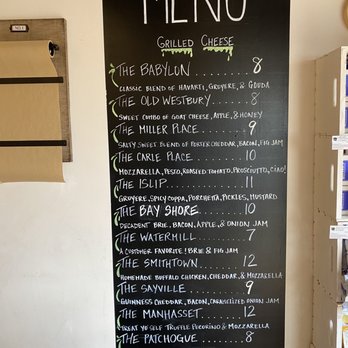 MENU
GRILLED CHEESE
THE BABYLON........ 8
CLASSIC BLEND OF HAVARTI, GRUYERE, & GOUDA
THE OLD WESTBURY.... 8
SWEET COMBO OF GOAT CHEESE, APPLE, & HONEY
THE MILLER PLACE..... 9
SALTY SWEET BLEND OF PORTER CHEDDAR, BACON, FIG JAM
THE CARLE PLACE...... 10
MOZZARELLA, PESTO, ROASTED TOMATO, PROSCIUTTO, CIAO!
THE ISLIP........... 11
GRUYERE, SPICY COPPA, PORCHETTA, PICKLES, MUSTARD
THE BAY SHORE...... 10
DECADENT BRIE, BACON, APPLE, & ONION JAM
THE WATERMILL..... 7
A CUSTOMER FAVORITE! BRIE & FIG JAM
THE SMITHTOWN...... 12
HOMEMADE BUFFALO CHICKEN, CHEDDAR, & MOZZARELLA
THE SAYVILLE....... 9
GUINNESS CHEDDAR, BACON, CARAMELIZED ONION JAM
THE MANHASSET..... 12
TREAT YO SELF TRUFFLE PECORINO & MOZZARELLA
THE PATCHOGUE..... 8